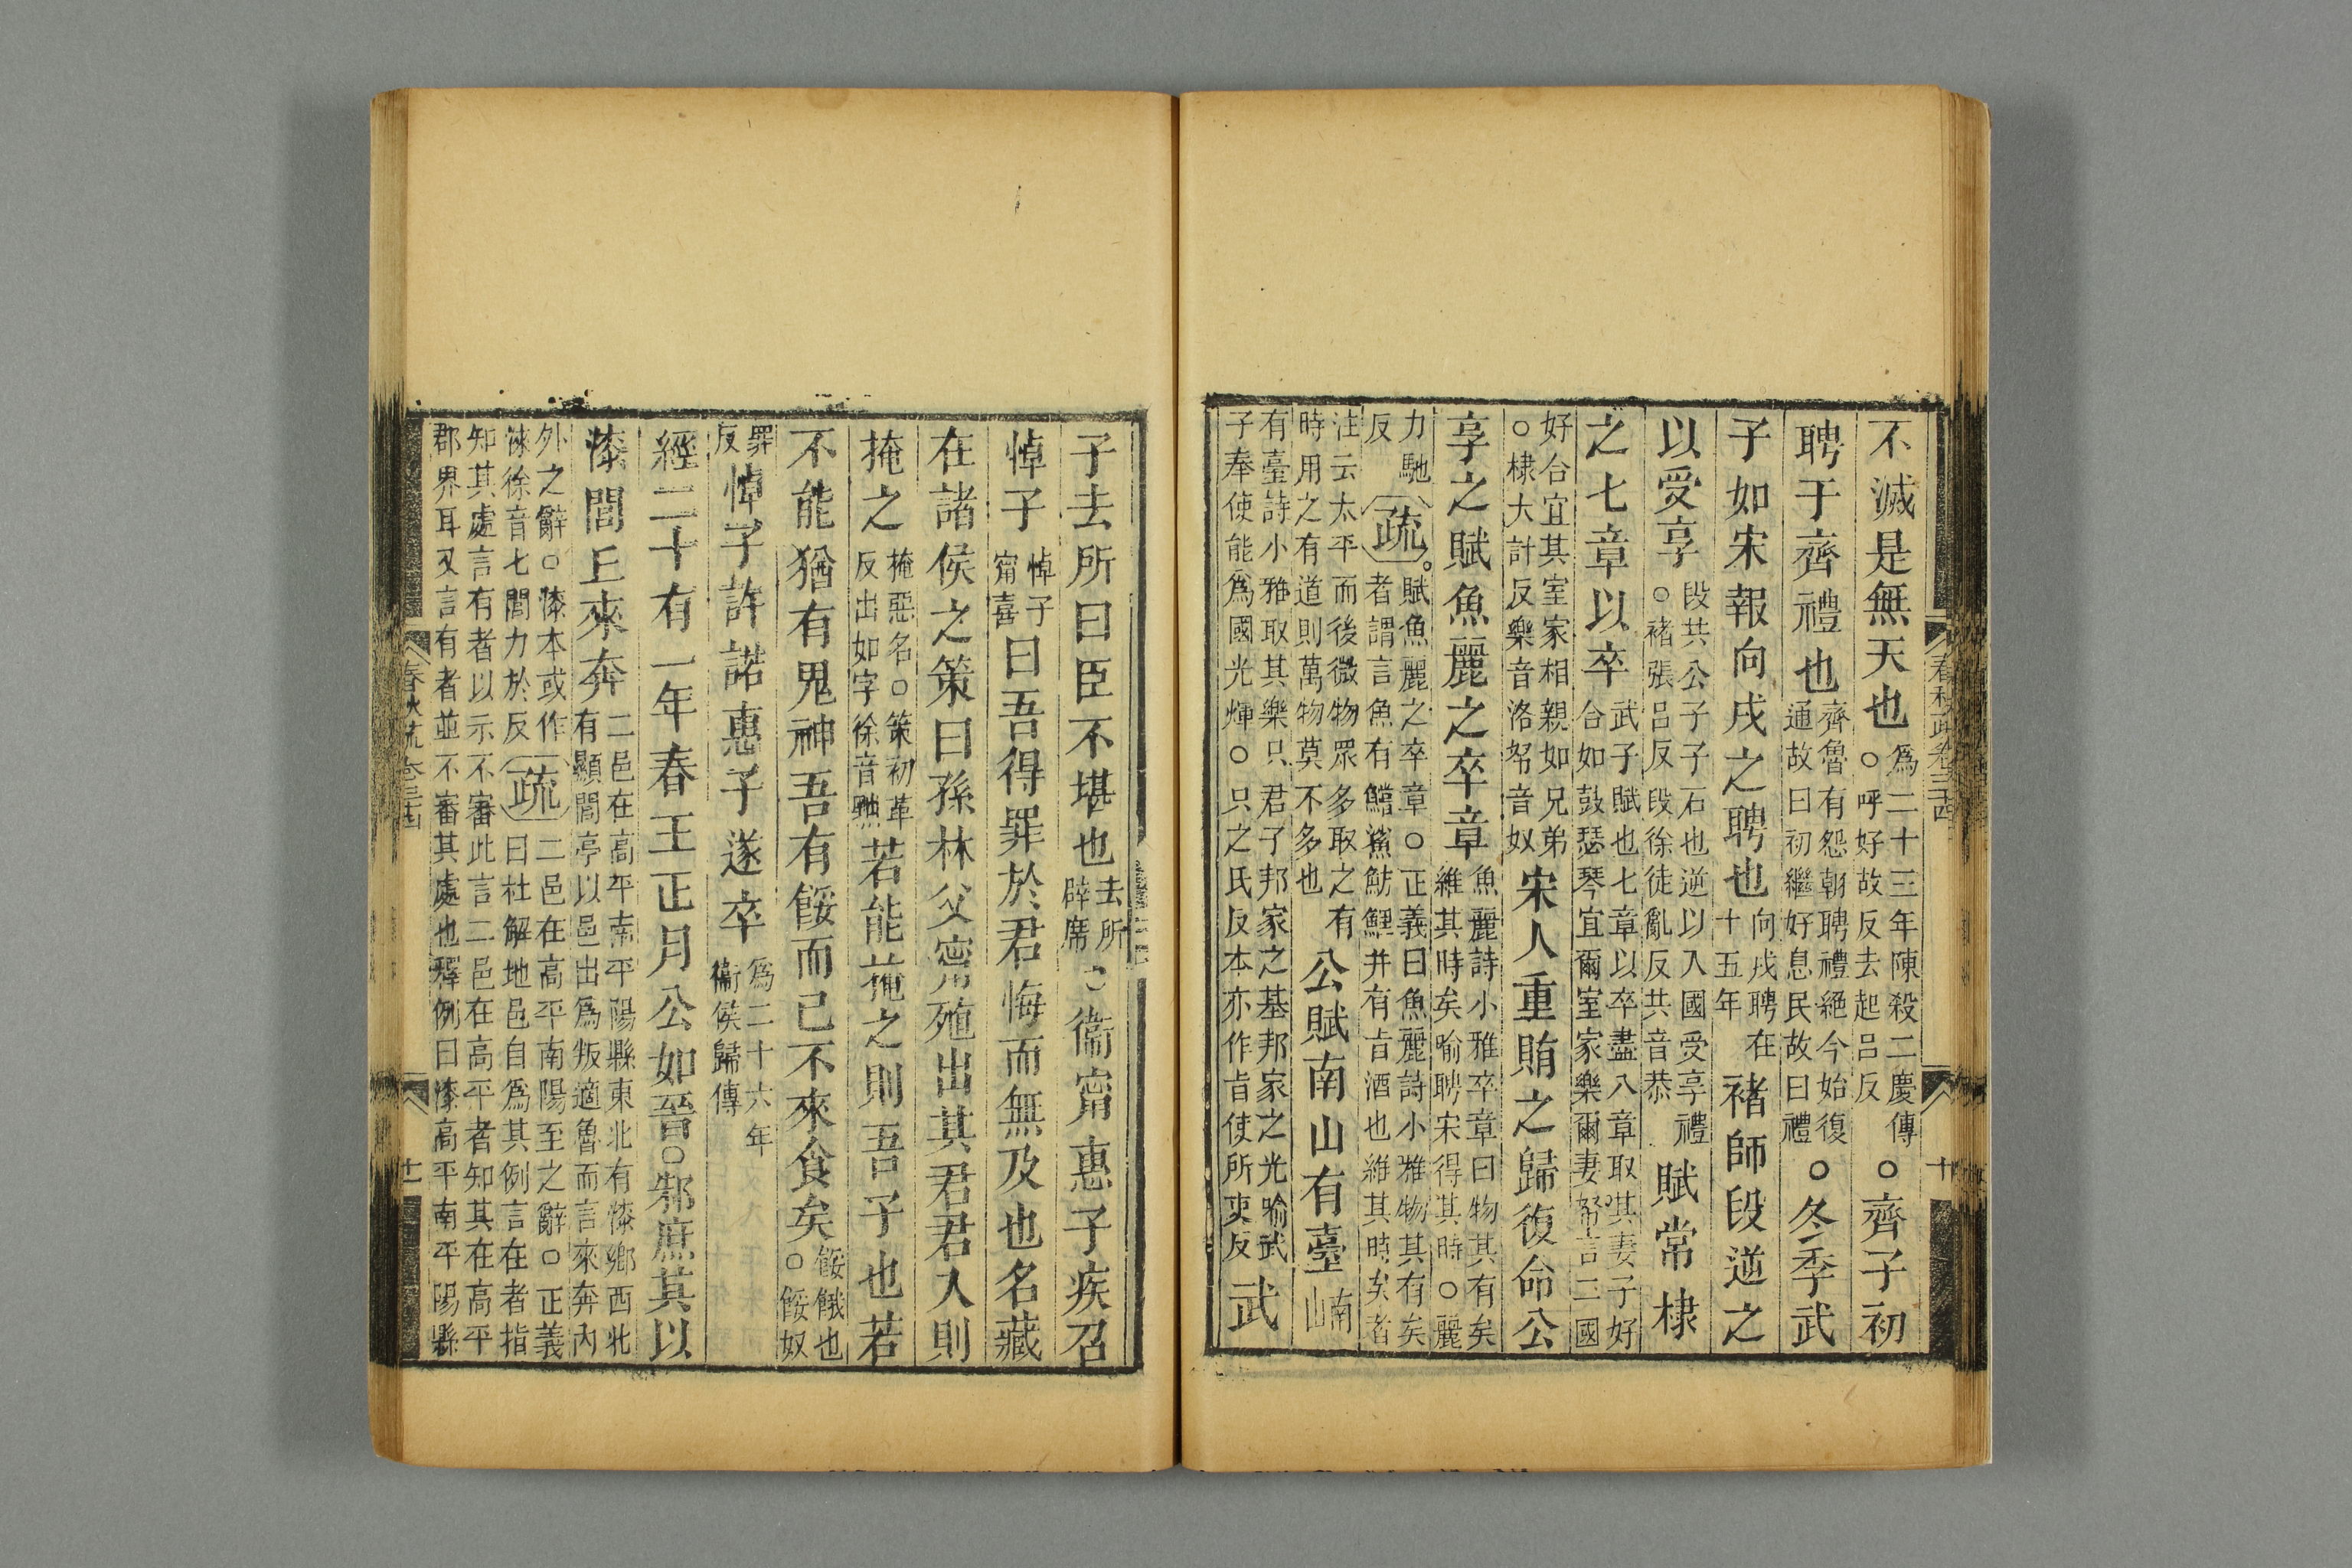 不滅是無天也爲二十三年陳殺二慶傳
○呼好故反去起呂反○齊子初
聘于齊禮也齊魯有怨朝聘禮絕今始復
通故曰初繼好息民故曰禮○冬季武
子如宋報向戌之聘也向戌聘在
十五年褚師段逆之
以受享段共公子子石也逆以入國受享禮
○褚張呂反段徐徒亂反共音恭賦常棣
之七章以卒武子賦也七章以卒盡八章取其妻子好
合如鼓瑟琴宜爾室家樂爾妻帑言二國
好合宜其室家相親如兄弟
○棣大計反樂音洛帑音奴宋人重賄之歸復命公
享之賦魚麗之卒章魚麗詩小雅卒章曰物其有矣
維其時矣喻聘宋得其時○麗
力馳
反疏賦魚麗之卒章○正義曰魚麗詩小雅物其有矣
者謂言魚有鱨鯊魴鯉并有旨酒也維其時矣者
注云太平而後微物眾多取之有
時用之有道則萬物莫不多也公賦南山有臺南山
有臺詩小雅取其樂只君子邦家之基邦家之光喻武
子奉使能爲國光煇○只之氏反本亦作旨使所吏反武
春秋疏卷三十四
十
子去所曰臣不堪也去所
辟席○衞甯惠子疾召
悼子悼子
甯喜曰吾得罪於君悔而無及也名藏
在諸侯之策曰孫林父甯殖出其君君入則
掩之掩惡名○策初革
反出如字徐音黜若能掩之則吾子也若
不能猶有鬼神吾有餒而已不來食矣餒餓也
○餒奴
罪
反悼子許諾惠子遂卒爲二十六年
衞侯歸傳
經二十有一年春王正月公如晉○邾庶其以
漆閭丘來奔二邑在高平南平陽縣東北有漆鄉西北
有顯閭亭以邑出爲叛適魯而言來奔內
外之辭○漆本或作
淶徐音七閭力於反疏二邑在高平南陽至之辭○正義
曰杜解地邑自爲其例言在者指
知其處言有者以示不審此言二邑在高平者知其在高平
郡界耳又言有者並不審其處也釋例曰漆高平南平陽縣
春秋疏卷三十四
十一